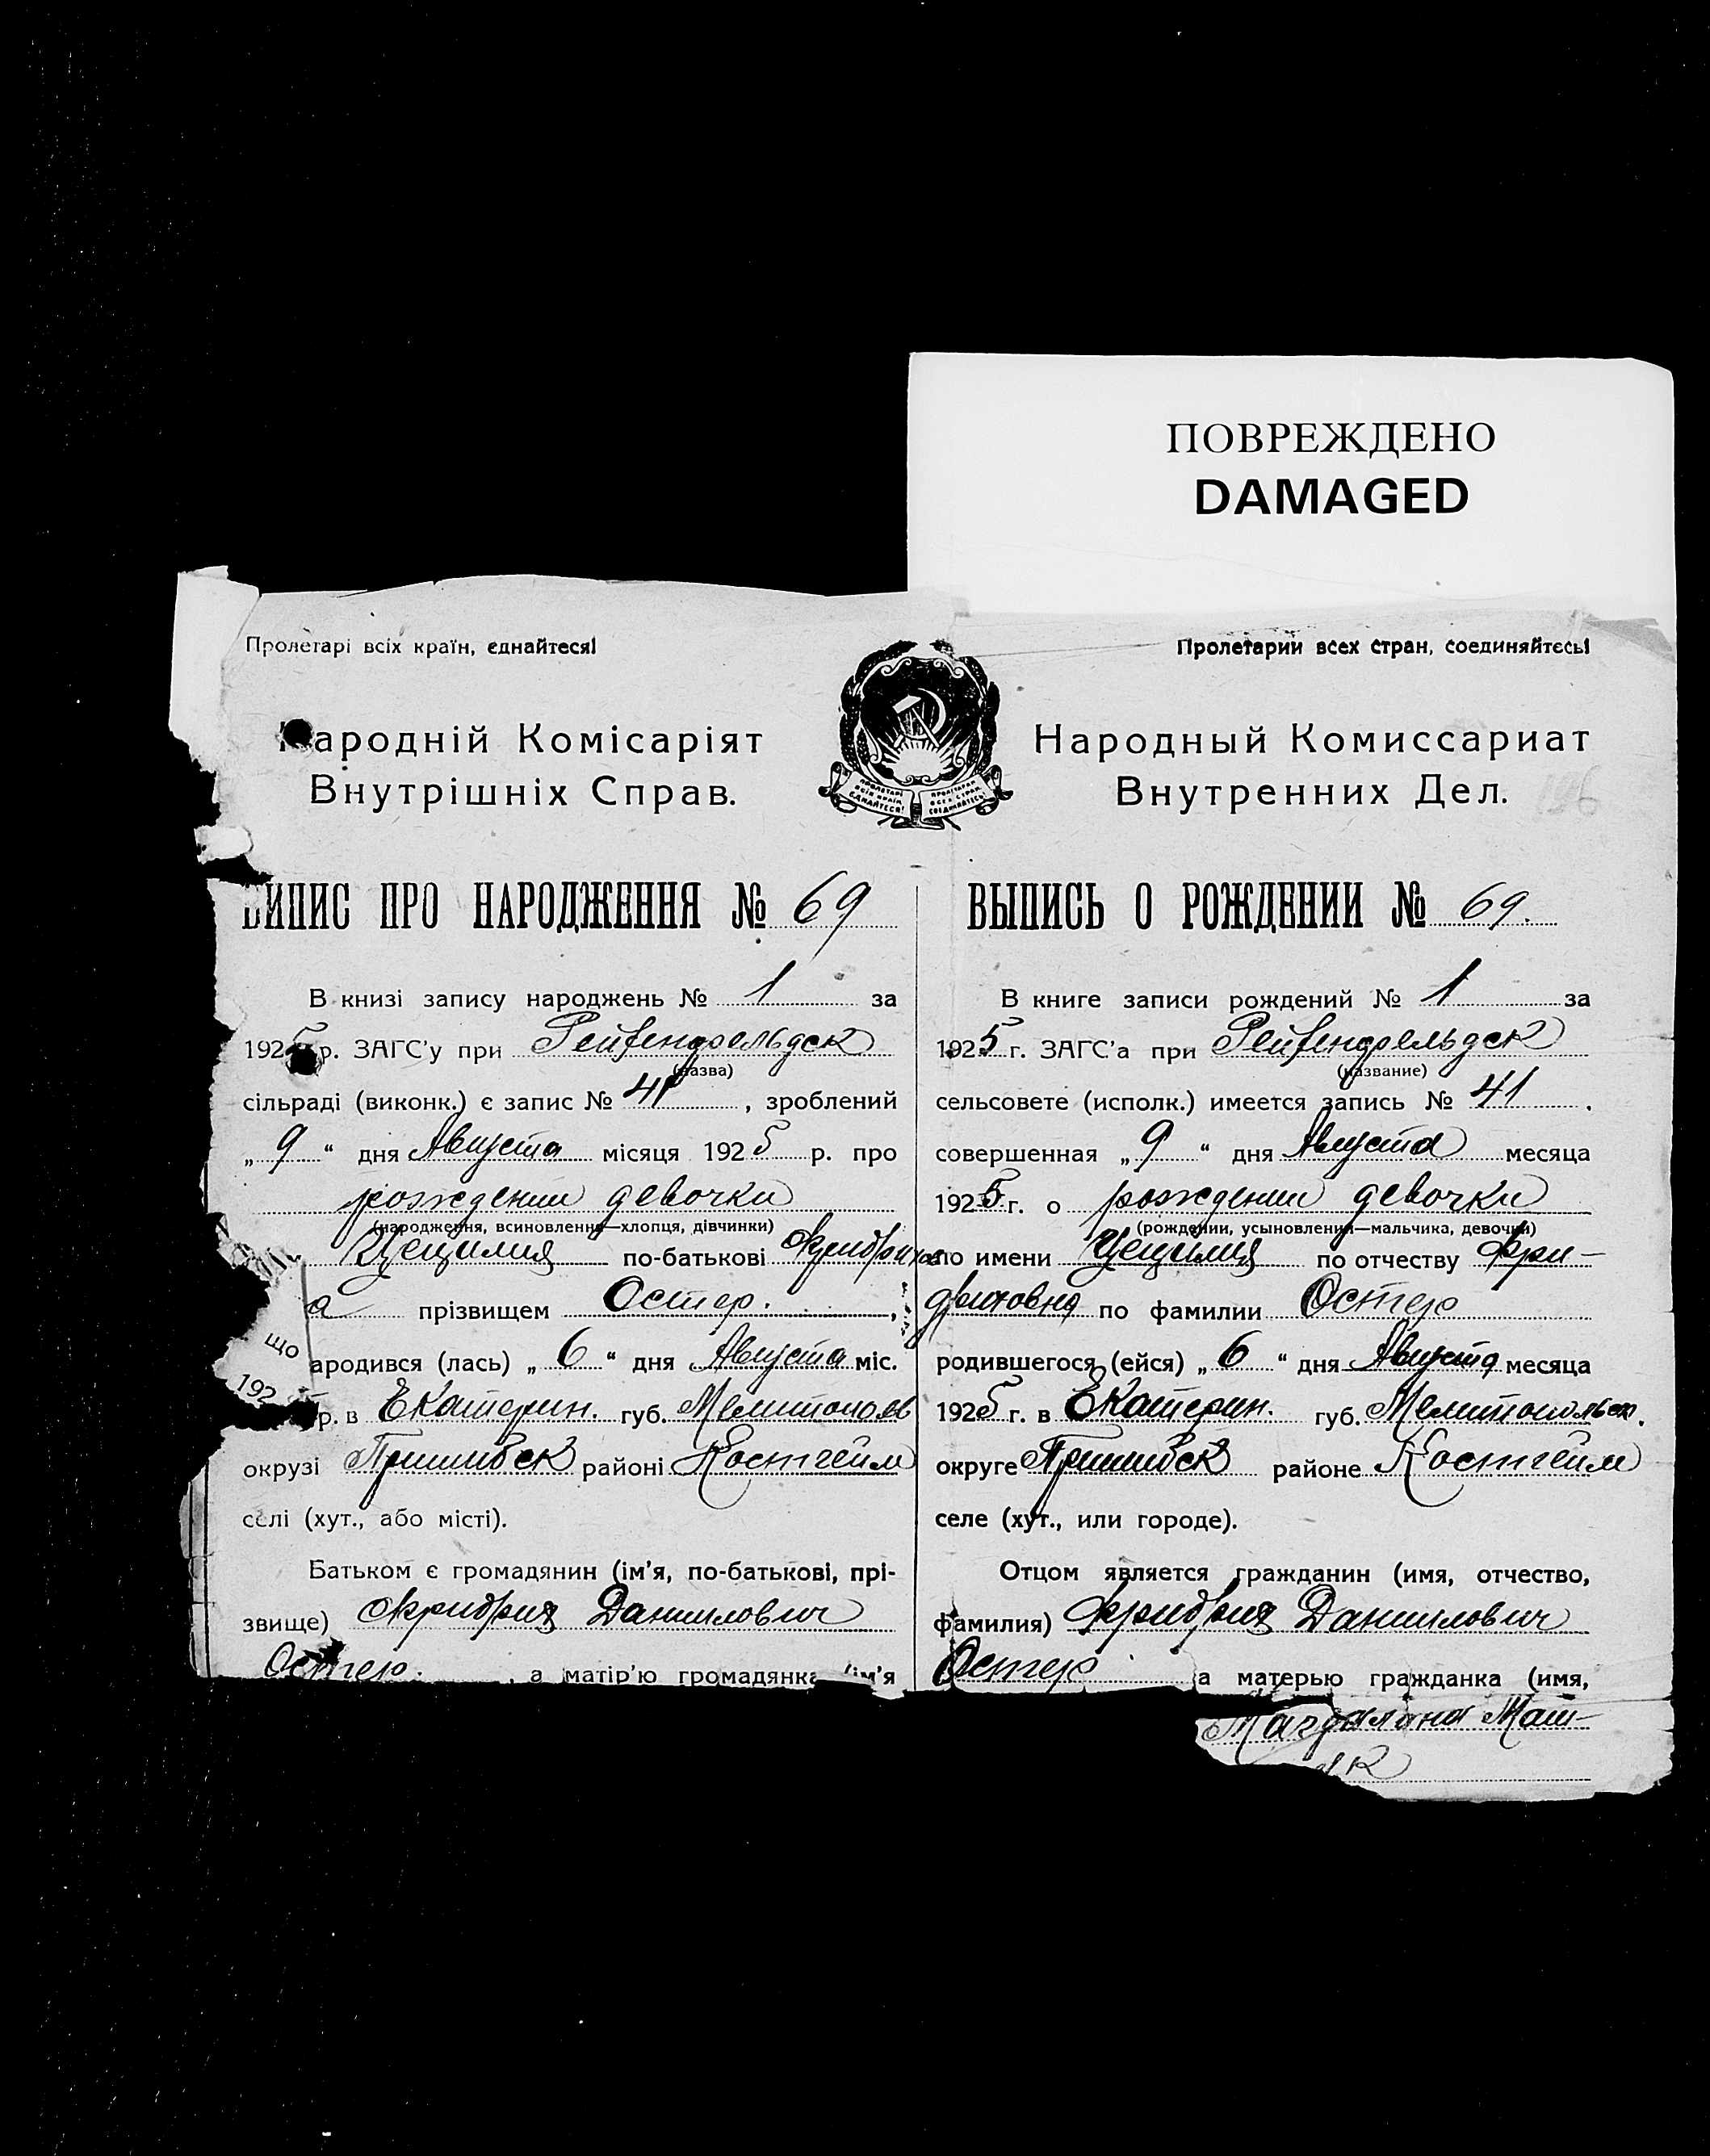 ПОВРЕЖДЕНО
DAMAGED
Пролетарі всіх країн, єднайтеся!
Народній Комісаріят
Внутрішніх Справ.
ВИПИС ПРО НАРОДЖЕННЯ № 69
В книзі запису народжень № 1 за
1925 р. ЗАГС'у при Рейхенфельдск
(назва)
сільраді (виконк.) є запис № 41, зроблений
„9“ дня Августа місяця 1925 р. про
рождении девочки
(народження, всиновлення—хлопця, дівчинки)
Цецилия по-батькові Фридрихов
а прізвищем Остер.,
що ародився (лась) „6“ дня Августа міс.
192 р. в Екатерин. губ. Мелитопольв
окрузі Пришибск районі Костгейм
селі (хут., або місті).
Батьком є громадянин (ім'я, по-батькові, прі-
звище) Фридрих Даниилович
Остер., а матір'ю громадянка (ім'я
Пролетарии всех стран, соединяйтесь!
Народный Комиссариат
Внутренних Дел.
126
ВЫПИСЬ О РОЖДЕНИИ № 69.
В книге записи рождений № 1 за
1925 г. ЗАГС'а при Рейхенфельдск
(название)
сельсовете (исполк.) имеется запись № 41.
совершенная „9“ дня Августа месяца
1925 г. о рождении девочки
(рождении, усыновлении—мальчика, девочки)
по имени Цецилия по отчеству Фри-
дриховна по фамилии Остер
родившегося (ейся) „6“ дня Августа месяца
1925 г. в Екатерин. губ. Мелитопольск.
округе Пришибск районе Костгейм
селе (хут., или городе).
Отцом является гражданин (имя, отчество,
фамилия) Фридрих Даниилович
Остер а матерью гражданка (имя,
Магдалана Маш-